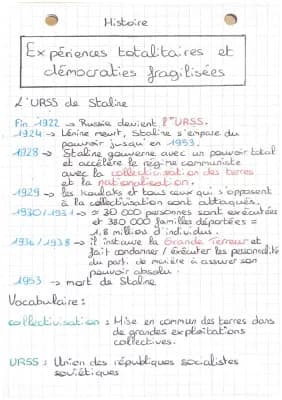 Histoire
Expériences totalitaires et
démocraties fragilisées
L'URSS de Staline
Fin 1922 → Russie devient l'URSS.
1924 → Lénine meurt, Staline s'empare du
pouvoir jusqu'en 1953.
1928 → Staline gouverne avec un pouvoir total
et accélère le régime communiste
avec la collectivisation des terres
et la nationalisation.
1929 → les koulaks et tous ceux qui s'opposent
à la collectivisation sont attaqués.
1930/1931 → ≈ 30 000 personnes sont exécutées
et 380 000 familles déportées =
1,8 millions d'individus.
1936/1938 → il instaure la Grande Terreur et
fait condamner / éxécuter les personnalités
du parti de manière à assurer son
pouvoir absolu.
1953 → mort de Staline
Vocabulaire :
collectivisation : Mise en commun des terres dans
de grandes exploitations
collectives.
URSS : Union des républiques socialistes
soviétiques